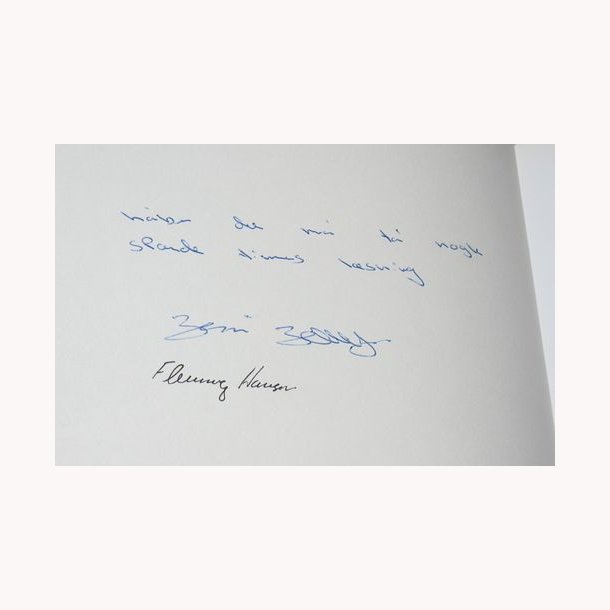 håber det må få nogle
spænde timers læsning
Flemming Hansen